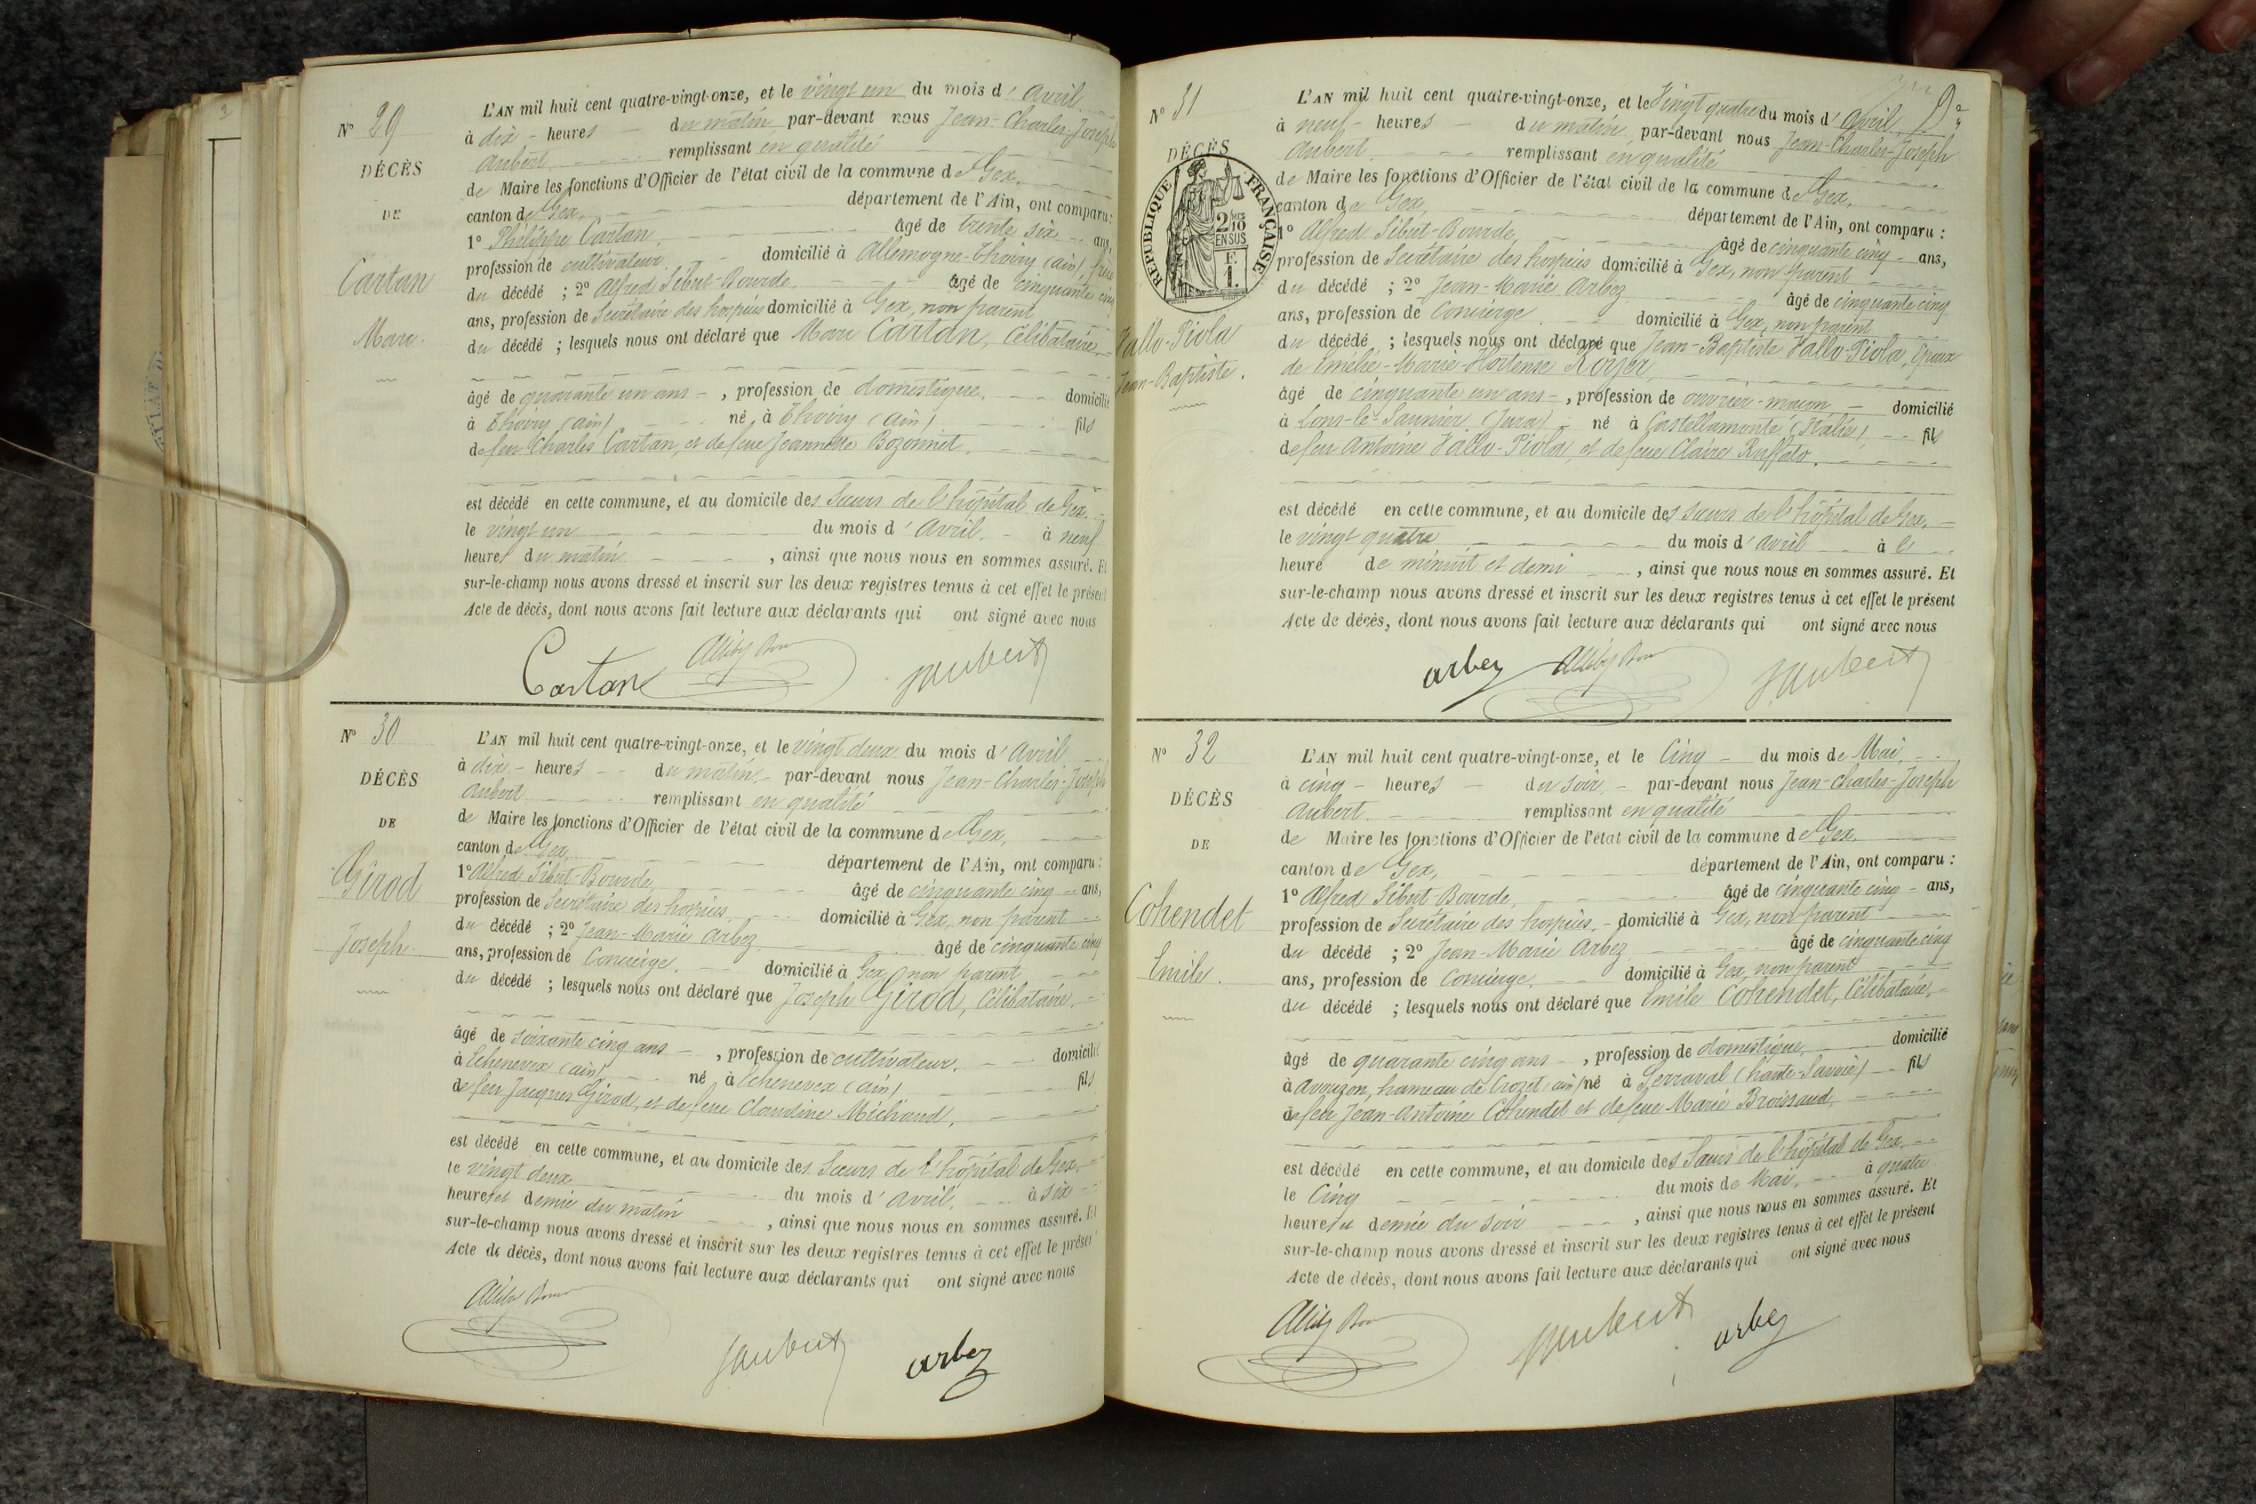 N° 29
DÉCÈS
DE
Cartan
Marc
L'AN mil huit cent quatre-vingt-onze, et le vingt un du mois d'avril
à dix heures du matin par-devant nous Jean-Charles-Joseph
Aubert remplissant en qualité
de Maire les fonctions d'Officier de l'état civil de la commune de Gex,
canton de Gex, département de l'Ain, ont comparu :
1° Philippe Cartan, âgé de trente six ans,
profession de cultivateur domicilié à Allemogne-Thoiry (ain), frère
du décédé ; 2° Alfred Sibut-Bourde, âgé de cinquante cinq
ans, profession de Secrétaire des hospices domicilié à Gex, non parent
du décédé ; lesquels nous ont déclaré que Marc Cartan, Célibataire,
âgé de quarante un ans, profession de domestique, domicilié
à Thoiry (ain) né à Thoiry (ain) fils
de feu Charles Cartan, et de feue Jeannette Bozonnet,
est décédé en cette commune, et au domicile des Sœurs de l'hôpital de Gex,
le vingt un du mois d'avril, à neuf
heures du matin, ainsi que nous nous en sommes assuré. Et
sur-le-champ nous avons dressé et inscrit sur les deux registres tenus à cet effet le présent
Acte de décès, dont nous avons fait lecture aux déclarants qui ont signé avec nous
Cartan
J Aubert
N° 30
DÉCÈS
DE
Girod
Joseph
L'AN mil huit cent quatre-vingt-onze, et le vingt deux du mois d'avril
à dix heures du matin par-devant nous Jean-Charles-Joseph
Aubert remplissant en qualité
de Maire les fonctions d'Officier de l'état civil de la commune de Gex,
canton de Gex, département de l'Ain, ont comparu :
1° Alfred Sibut-Bourde, âgé de cinquante cinq ans,
profession de Secrétaire des hospices domicilié à Gex, non parent
du décédé ; 2° Jean-Marie Arbez âgé de cinquante cinq
ans, profession de Concierge, domicilié à Gex, non parent
du décédé ; lesquels nous ont déclaré que Joseph Girod, Célibataire,
âgé de soixante cinq ans, profession de cultivateur, domicilié
à Echenevex (ain) né à Echenevex (ain) fils
de feu Jacques Girod, et de feue Claudine Michaud,
est décédé en cette commune, et au domicile des Sœurs de l'hôpital de Gex,
le vingt deux du mois d'avril, à six
heures et demie du matin, ainsi que nous nous en sommes assuré. Et
sur-le-champ nous avons dressé et inscrit sur les deux registres tenus à cet effet le présent
Acte de décès, dont nous avons fait lecture aux déclarants qui ont signé avec nous
J Aubert
arbez
N° 31
DÉCÈS
RÉPUBLIQUE FRANÇAISE
2/10
EN SUS
F.
1.
Vallo-Piola
Jean-Baptiste.
L'AN mil huit cent quatre-vingt-onze, et le Vingt quatre du mois d'avril,
à neuf heures du matin par-devant nous Jean-Charles-Joseph
Aubert remplissant en qualité
de Maire les fonctions d'Officier de l'état civil de la commune de Gex,
canton de Gex, département de l'Ain, ont comparu :
1° Alfred Sibut-Bourde, âgé de cinquante cinq ans,
profession de Secrétaire des hospices domicilié à Gex, non parent
du décédé ; 2° Jean-Marie Arbez âgé de cinquante cinq
ans, profession de Concierge domicilié à Gex, non parent
du décédé ; lesquels nous ont déclaré que Jean-Baptiste Vallo-Piola, Epoux
de Emélie-Marie-Hortense Royer,
âgé de cinquante un ans, profession de ouvrier-maçon domicilié
à Lons-le-Saunier, (Jura) né à Castellamonte (Italie), fils
de feu Antoine Vallo-Piola, et de feue Claire Ruffato,
est décédé en cette commune, et au domicile des Sœurs de l'hôpital de Gex,
le vingt quatre du mois d'avril à l'
heure de minuit et demi, ainsi que nous nous en sommes assuré. Et
sur-le-champ nous avons dressé et inscrit sur les deux registres tenus à cet effet le présent
Acte de décès, dont nous avons fait lecture aux déclarants qui ont signé avec nous
arbez
J Aubert
N° 32
DÉCÈS
DE
Cohendet
Emile.
L'AN mil huit cent quatre-vingt-onze, et le Cinq du mois de Mai,
à cinq heures du soir par-devant nous Jean-Charles-Joseph
Aubert remplissant en qualité
de Maire les fonctions d'Officier de l'état civil de la commune de Gex,
canton de Gex, département de l'Ain, ont comparu :
1° Alfred Sibut-Bourde, âgé de cinquante cinq ans,
profession de Secrétaire des hospices, domicilié à Gex, non parent
du décédé ; 2° Jean-Marie Arbez âgé de cinquante cinq
ans, profession de Concierge, domicilié à Gex, non parent
du décédé ; lesquels nous ont déclaré que Emile Cohendet, Célibataire,
âgé de quarante cinq ans, profession de domestique, domicilié
à Avouzon, hameau de Crozet (ain) né à Serraval (haute-Savoie) fils
de feu Jean-Antoine Cohendet et de feue Marie Broissand,
est décédé en cette commune, et au domicile des Sœurs de l'hôpital de Gex,
le Cinq du mois de Mai, à quatre
heures et demie du soir, ainsi que nous nous en sommes assuré. Et
sur-le-champ nous avons dressé et inscrit sur les deux registres tenus à cet effet le présent
Acte de décès, dont nous avons fait lecture aux déclarants qui ont signé avec nous
J Aubert
arbez